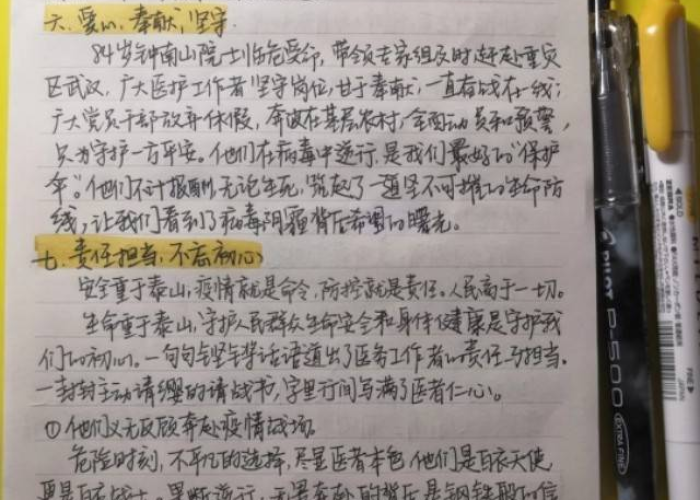 六.爱心.奉献,坚守
84岁钟南山院士临危受命,带领专家组及时赶赴重灾
区武汉,广大医护工作者坚守岗位,甘于奉献,一直奋战在一线;
广大党员干部放弃休假,奔波在基层农村,全面动员和预警,
只为守护一方平安。他们在病毒中逆行,是我们最好的"保护
伞"。他们不计报酬,无论生死,筑起了一道坚不可摧的生命防
线,让我们看到了病毒阴霾背后希望的曙光。
七.责任担当,不忘初心
安全重于泰山,疫情就是命令,防控就是责任。人民高于一切。
生命重于泰山,守护人民群众生命安全和身体健康是守护我
们的初心。一句句铿锵话语道出了医务工作者的责任与担当.
一封封主动请缨的请战书,字里行间写满了医者仁心。
①他们义无反顾奔赴疫情战场.
危险时刻,不平凡的选择,尽显医者本色.他们是白衣天使
更是白衣战士.
BOLD
FINE
PILOT
P-500
EXTRA FINE